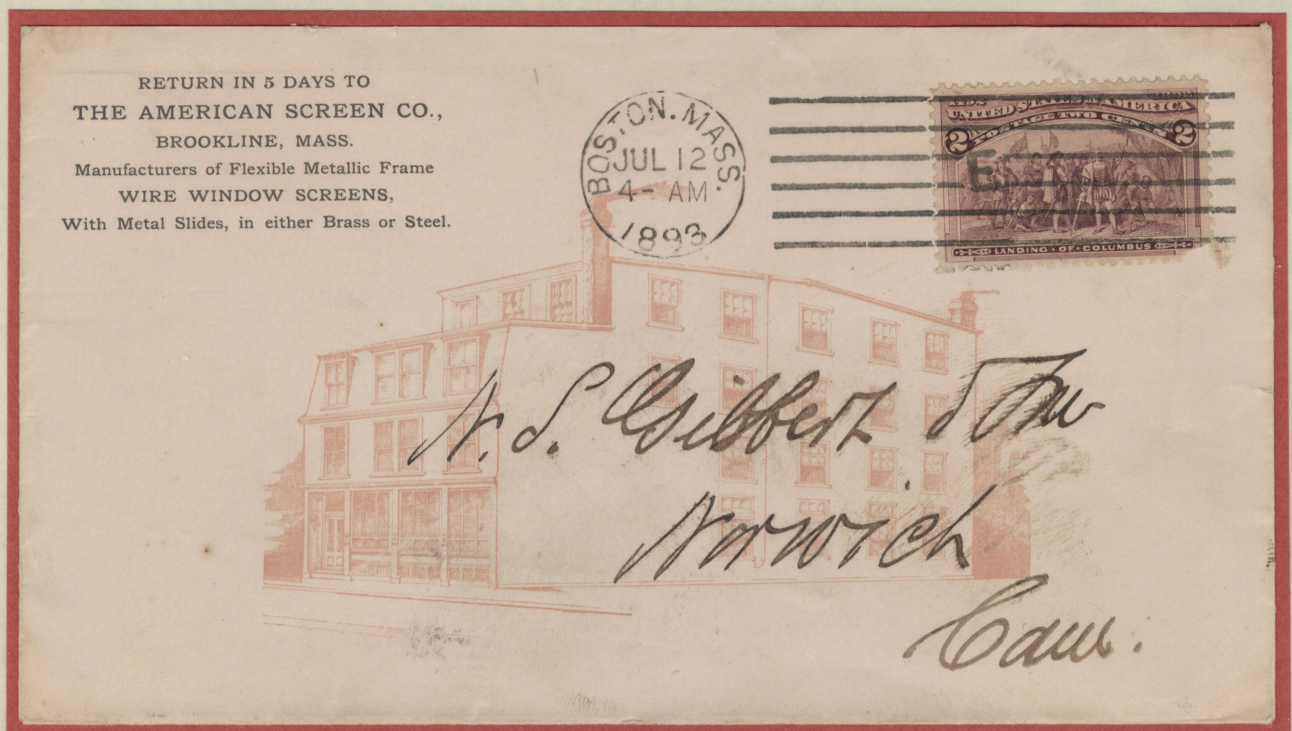 RETURN IN 5 DAYS TO
THE AMERICAN SCREEN CO.,
BROOKLINE, MASS.
Manufacturers of Flexible Metallic Frame
WIRE WINDOW SCREENS,
With Metal Slides, in either Brass or Steel.
BOSTON. MASS.
JUL 12
4 - AM
1893
UNITED STATES OF AMERICA
2 POSTAGE TWO CENTS 2
E
LANDING · OF · COLUMBUS
N. S. Gilbert
Norwich
Conn.